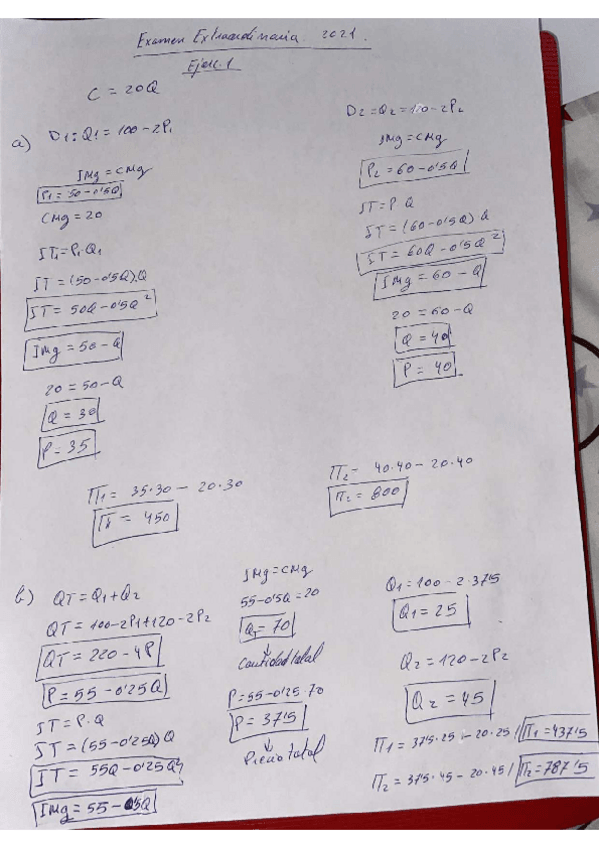 Examen Extraordinaria 2021.
Ejerc. 1
C = 20Q
a) D1: Q1 = 100 - 2P1
IMg = CMg
P1 = 50 - 0'5Q
CMg = 20
IT1 = P1·Q1
IT = (50 - 0'5Q)·Q
IT = 50Q - 0'5Q²
IMg = 50 - Q
20 = 50 - Q
Q = 30
P = 35
Π1 = 35·30 - 20·30
Π = 450
D2 = Q2 = 100 - 2P2
IMg = CMg
P2 = 60 - 0'5Q
IT = P·Q
IT = (60 - 0'5Q) Q
IT = 60Q - 0'5Q²
IMg = 60 - Q
20 = 60 - Q
Q = 40
P = 40
Π2 = 40·40 - 20·40
Π2 = 800
b) QT = Q1 + Q2
QT = 100 - 2P1 + 120 - 2P2
QT = 220 - 4P
P = 55 - 0'25Q
IT = P·Q
IT = (55 - 0'25Q) Q
IT = 55Q - 0'25Q²
IMg = 55 - 0'5Q
IMg = CMg
55 - 0'5Q = 20
QT = 70
↓
Cantidad total
P = 55 - 0'25·70
P = 37'5
↓
Precio total
Q1 = 100 - 2·37'5
Q1 = 25
Q2 = 120 - 2P2
Q2 = 45
Π1 = 37'5·25 - 20·25 / Π1 = 437'5
Π2 = 37'5·45 - 20·45 / Π2 = 787'5